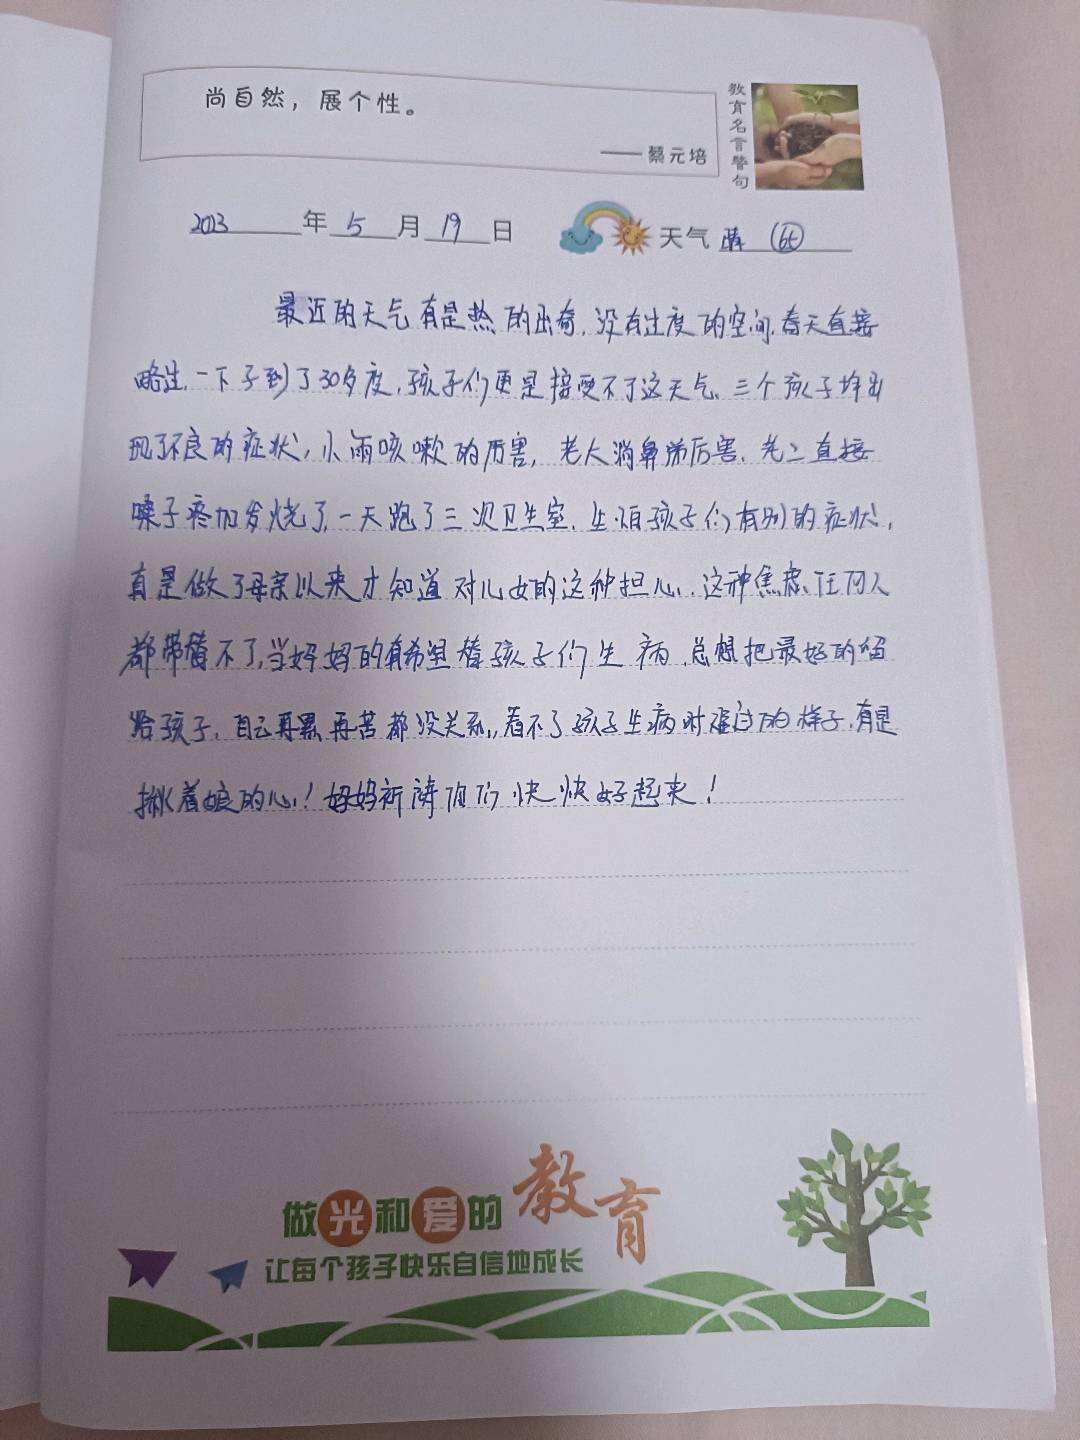 尚自然，展个性。
——蔡元培
教育名言警句
2023年5月19日 天气 晴 (65)
最近的天气真是热的出奇，没有过度的空间，春天直接
略过，一下子到了30多度，孩子们更是接受不了这天气，三个孩子均出
现了不良的症状，小雨咳嗽的厉害，老大淌鼻涕厉害，老二直接
嗓子疼加发烧了，一天跑了三次卫生室，生怕孩子们有别的症状，
真是做了母亲以来才知道对儿女的这种担心，这种焦虑，任何人
都带替不了，当妈妈的真希望替孩子们生病，总想把最好的留
给孩子，自己再累再苦都没关系，看不了孩子生病时难过的样子，真是
揪着娘的心！妈妈祈祷你们快快好起来！
做光和爱的教育
让每个孩子快乐自信地成长